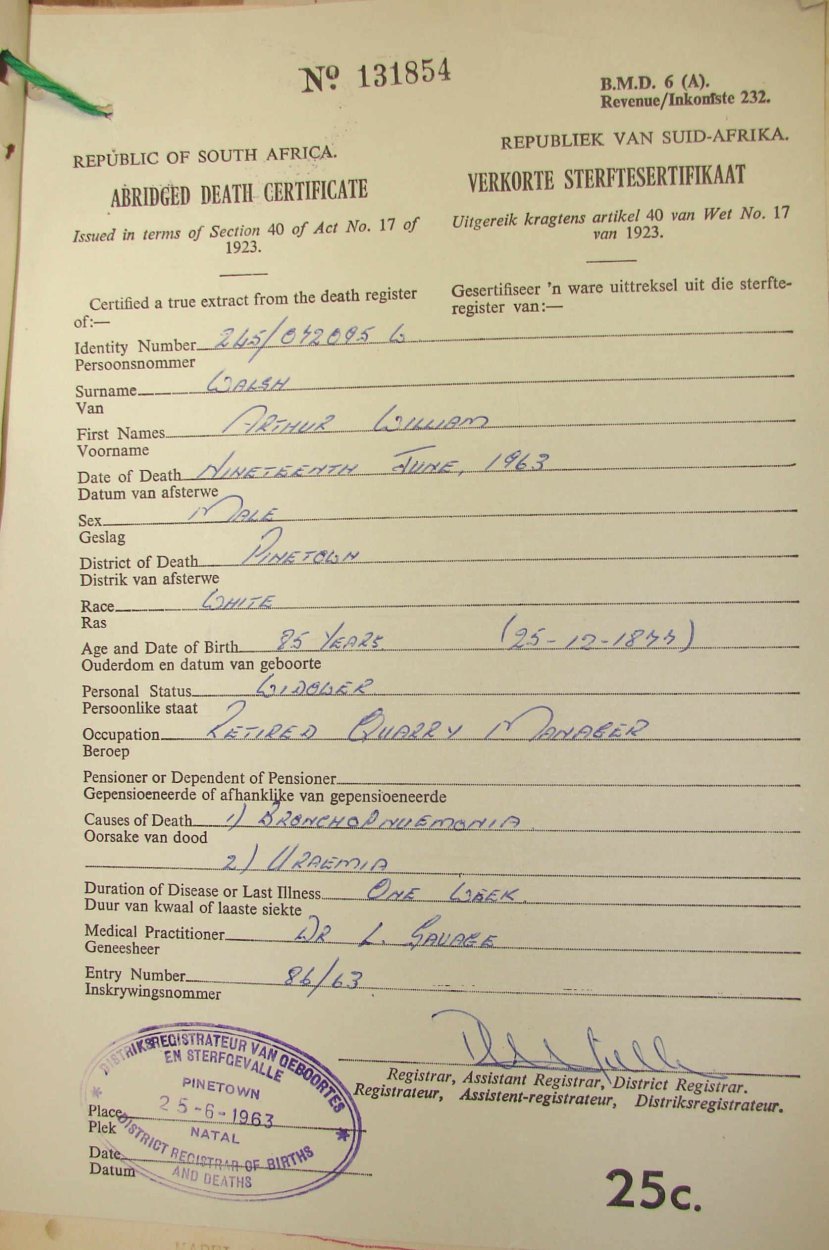 Nº 131854
B.M.D. 6 (A).
Revenue/Inkomste 232.
REPUBLIC OF SOUTH AFRICA.
ABRIDGED DEATH CERTIFICATE
Issued in terms of Section 40 of Act No. 17 of
1923.
REPUBLIEK VAN SUID-AFRIKA.
VERKORTE STERFTESERTIFIKAAT
Uitgereik kragtens artikel 40 van Wet No. 17
van 1923.
Certified a true extract from the death register
of:—
Gesertifiseer 'n ware uittreksel uit die sterfte-
register van:—
Identity Number 245/072095 W
Persoonsnommer
Surname WALSH
Van
First Names ARTHUR WILLIAM
Voorname
Date of Death NINETEENTH JUNE, 1963
Datum van afsterwe
Sex MALE
Geslag
District of Death PINETOWN
Distrik van afsterwe
Race WHITE
Ras
Age and Date of Birth 85 YEARS (25-12-1877)
Ouderdom en datum van geboorte
Personal Status WIDOWER
Persoonlike staat
Occupation RETIRED QUARRY MANAGER
Beroep
Pensioner or Dependent of Pensioner
Gepensioeneerde of afhanklike van gepensioeneerde
Causes of Death 1) BRONCHOPNUEMONIA
Oorsake van dood
2) URAEMIA
Duration of Disease or Last Illness ONE WEEK.
Duur van kwaal of laaste siekte
Medical Practitioner DR L. SAVAGE
Geneesheer
Entry Number 86/63
Inskrywingsnommer
Registrar, Assistant Registrar, District Registrar.
Registrateur, Assistent-registrateur, Distriksregistrateur.
DISTRIKSREGISTRATEUR VAN GEBOORTES
EN STERFGEVALLE
PINETOWN
25-6-1963
NATAL
DISTRICT REGISTRAR OF BIRTHS
AND DEATHS
Place
Plek
Date
Datum
25c.